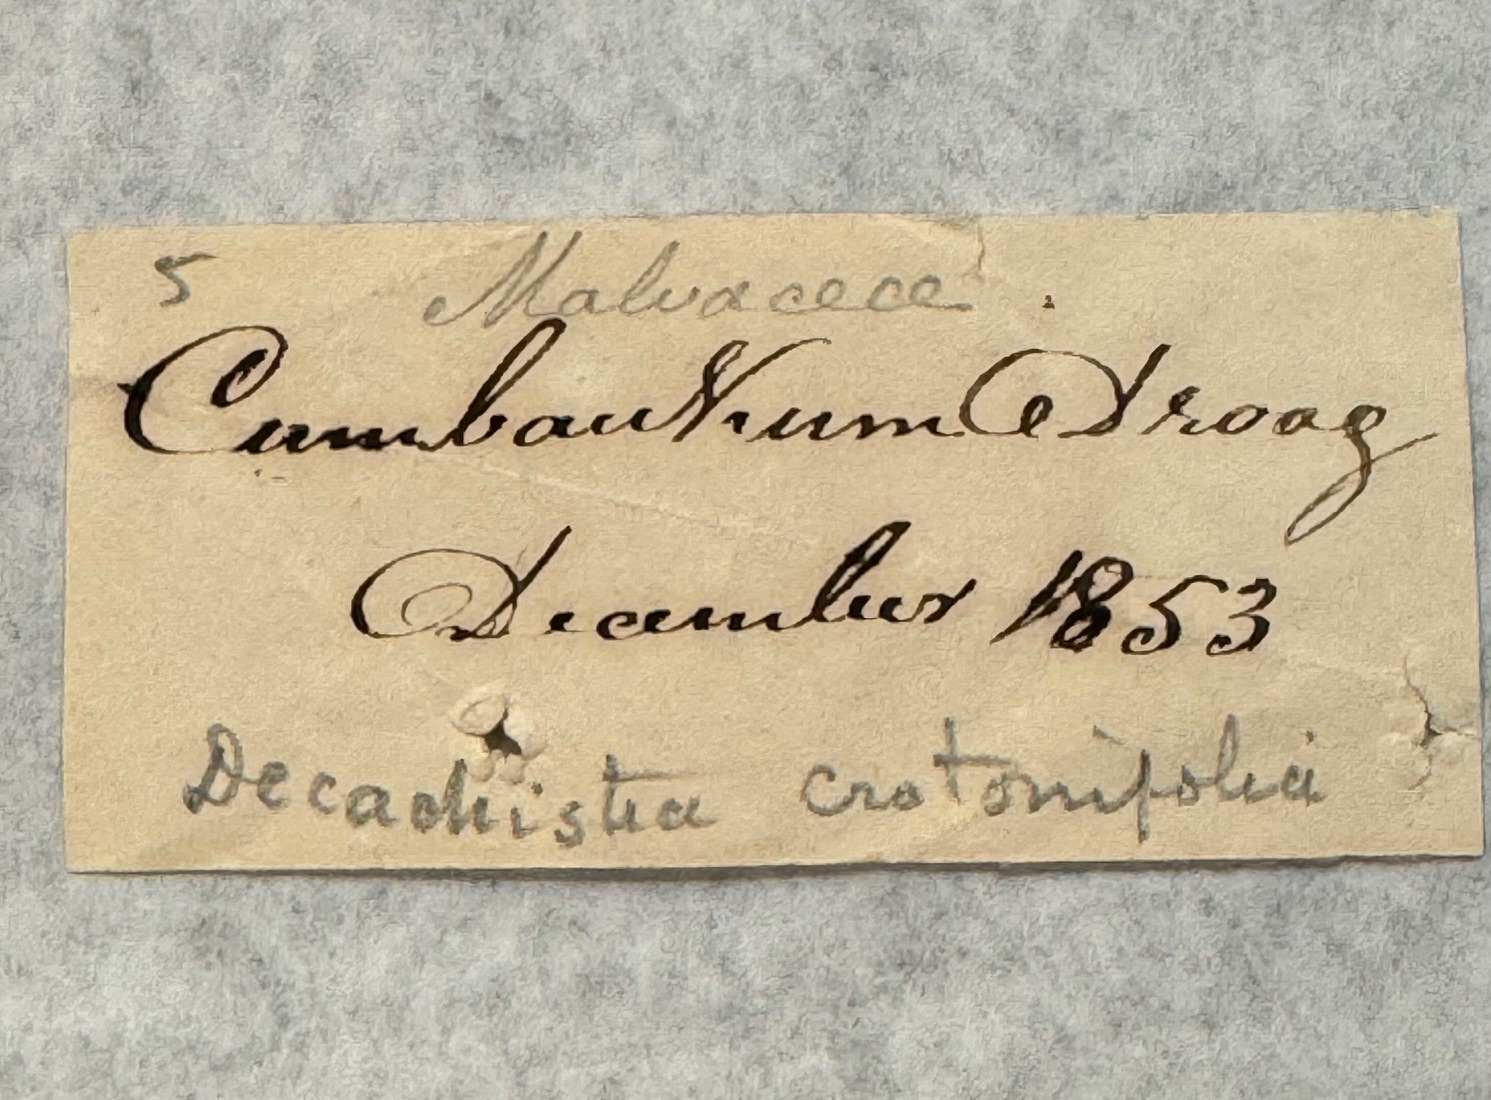 5 Malvaceae
Cumbaukum Droog
December 1853
Decachistia crotonifolia